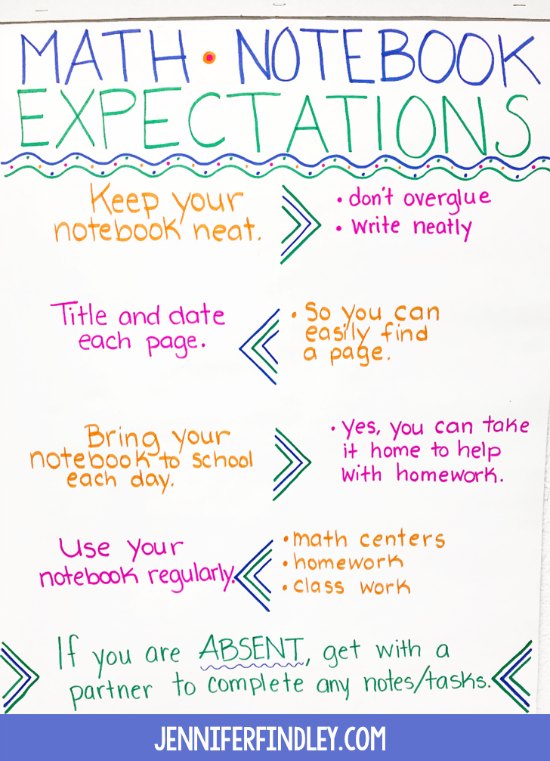 MATH • NOTEBOOK
EXPECTATIONS
Keep your
notebook neat.
• don't overglue
• Write neatly
Title and date
each page.
• So you can
easily find
a page.
Bring your
notebook to school
each day.
• Yes, you can take
it home to help
with homework.
Use your
notebook regularly.
• math centers
• homework
• class work
If you are ABSENT, get with a
partner to complete any notes/tasks.
JENNIFERFINDLEY.COM